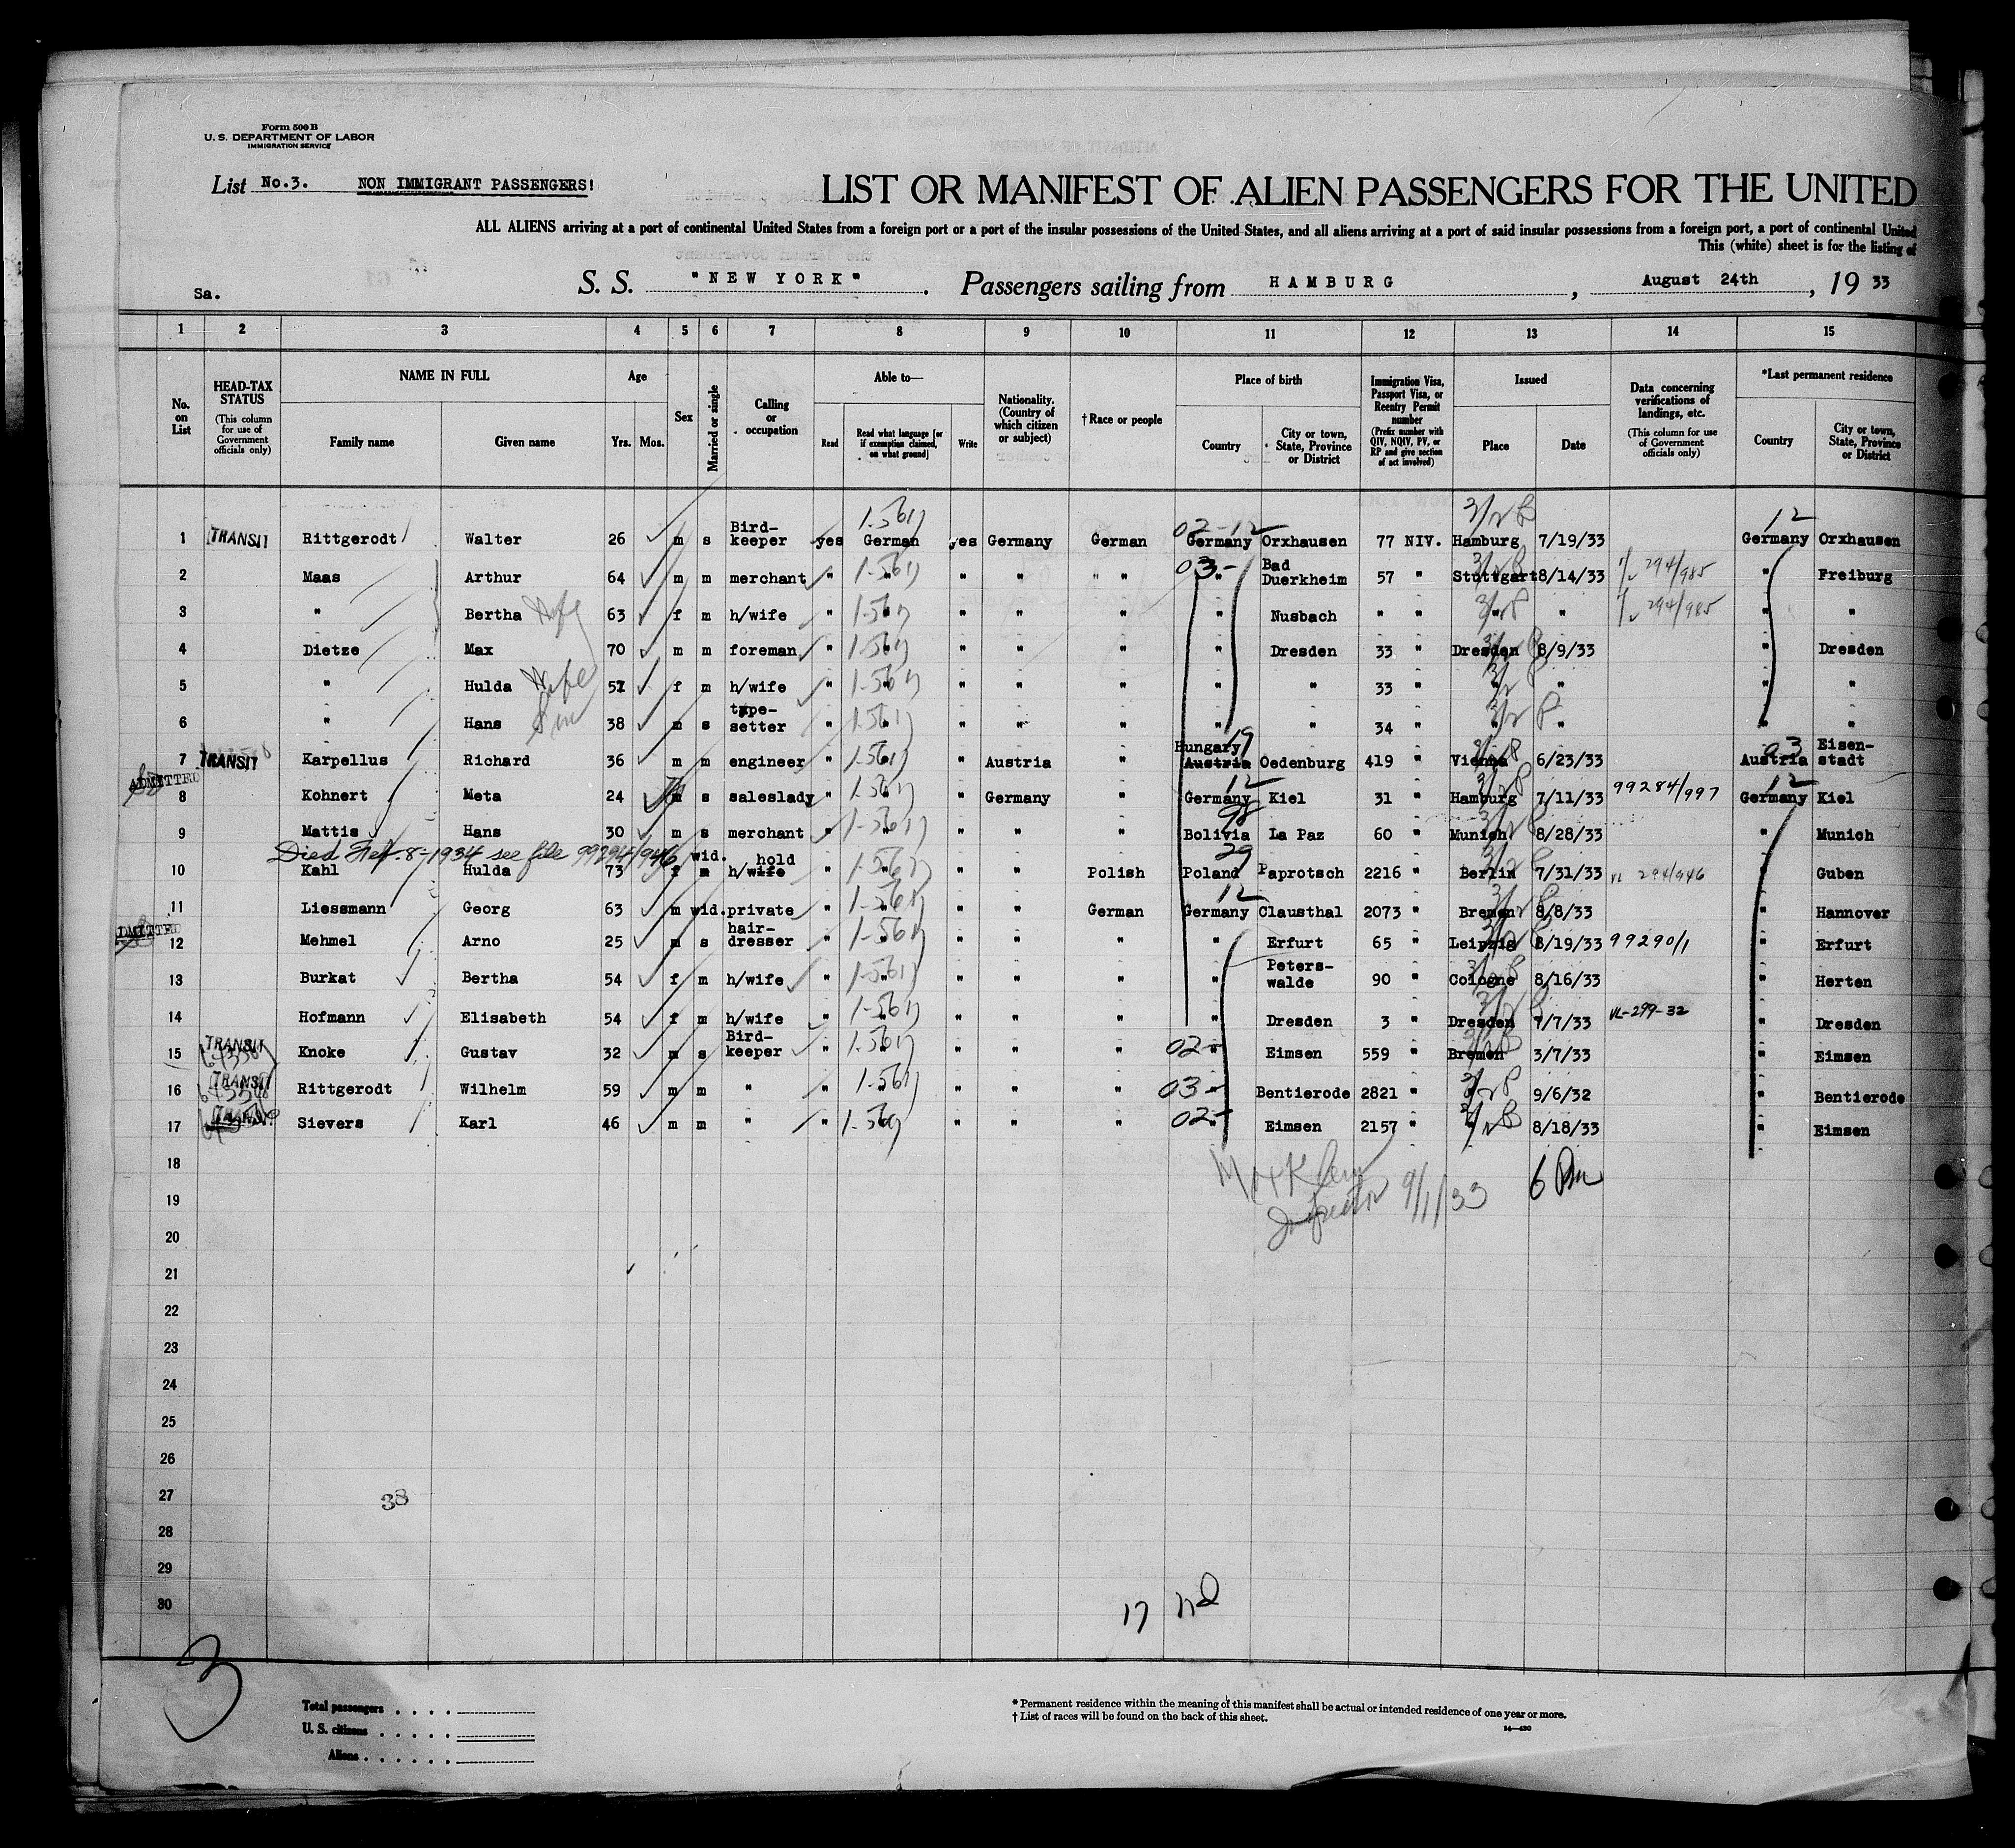 Form 500 B
U. S. DEPARTMENT OF LABOR
IMMIGRATION SERVICE
List No.3. NON IMMIGRANT PASSENGERS!
LIST OR MANIFEST OF ALIEN PASSENGERS FOR THE UNITED
ALL ALIENS arriving at a port of continental United States from a foreign port or a port of the insular possessions of the United States, and all aliens arriving at a port of said insular possessions from a foreign port, a port of continental United
This (white) sheet is for the listing of
Sa. S. S. "NEW YORK". Passengers sailing from HAMBURG, August 24th, 19 33
1 2 3 4 5 6 7 8 9 10 11 12 13 14 15
No. on List
HEAD-TAX STATUS (This column for use of Government officials only)
NAME IN FULL
Family name Given name
Age
Yrs. Mos.
Sex
Married or single
Calling or occupation
Able to—
Read Read what language [or if exemption claimed, on what ground] Write
Nationality. (Country of which citizen or subject)
†Race or people
Place of birth
Country City or town, State, Province or District
Immigration Visa, Passport Visa, or Reentry Permit number (Prefix number with QIV, NQIV, PV, or RP and give section of act involved)
Issued
Place Date
Data concerning verifications of landings, etc. (This column for use of Government officials only)
*Last permanent residence
Country City or town, State, Province or District
1 TRANSIT Rittgerodt Walter 26 m s Bird-keeper yes German yes Germany German 02-12 Germany Orxhausen 77 NIV. Hamburg 7/19/33 12 Germany Orxhausen
2 Maas Arthur 64 m m merchant " " " " " 03- " Bad Duerkheim 57 " Stuttgart 8/14/33 294/985 " Freiburg
3 " Bertha Wife 63 f m h/wife " " " " " " Nusbach " " " " 294/985 " "
4 Dietze Max 70 m m foreman " " " " " " Dresden 33 " Dresden 8/9/33 " Dresden
5 " Hulda Wife 57 f m h/wife " " " " " " " 33 " " " " "
6 " Hans Son 38 m s type-setter " " " " " " " 34 " " " " "
7 TRANSIT Karpellus Richard 36 m m engineer " " " Austria " Hungary 19 Austria Oedenburg 419 " Vienna 6/23/33 03 Austria Eisen-stadt
ADMITTED
8 Kohnert Meta 24 s saleslady " " " Germany " 12 Germany Kiel 31 " Hamburg 7/11/33 99284/997 12 Germany Kiel
9 Mattis Hans 30 m s merchant " " " " " 98 Bolivia La Paz 60 " Munich 8/28/33 " Munich
Died Feb. 8-1934 see file 99294/946
10 Kahl Hulda 73 f wid. h/wife hold " " " " Polish 29 Poland Paprotsch 2216 " Berlin 7/31/33 VL 294/946 " Guben
11 Liessmann Georg 63 m wid. private " " " " German 12 Germany Clausthal 2073 " Bremen 8/8/33 " Hannover
ADMITTED
12 Mehmel Arno 25 m s hair-dresser " " " " " " Erfurt 65 " Leipzig 8/19/33 99290/1 " Erfurt
13 Burkat Bertha 54 f m h/wife " " " " " " Peters-walde 90 " Cologne 8/16/33 " Herten
14 Hofmann Elisabeth 54 f m h/wife " " " " " " Dresden 3 " Dresden 7/7/33 VL-299-32 " Dresden
15 TRANSIT Knoke Gustav 32 m s Bird-keeper " " " " " 02- " Eimsen 559 " Bremen 3/7/33 " Eimsen
16 TRANSIT Rittgerodt Wilhelm 59 m m " " " " " " 03- " Bentierode 2821 " " 9/6/32 " Bentierode
17 TRANSIT Sievers Karl 46 m m " " " " " 02- " Eimsen 2157 " " 8/18/33 " Eimsen
18
Inspector 9/1/33 6 Pm
19
20
21
22
23
24
25
26
27
38
28
29
30
17
3
Total passengers
U. S. citizens
Aliens
* Permanent residence within the meaning of this manifest shall be actual or intended residence of one year or more.
† List of races will be found on the back of this sheet.
14—430